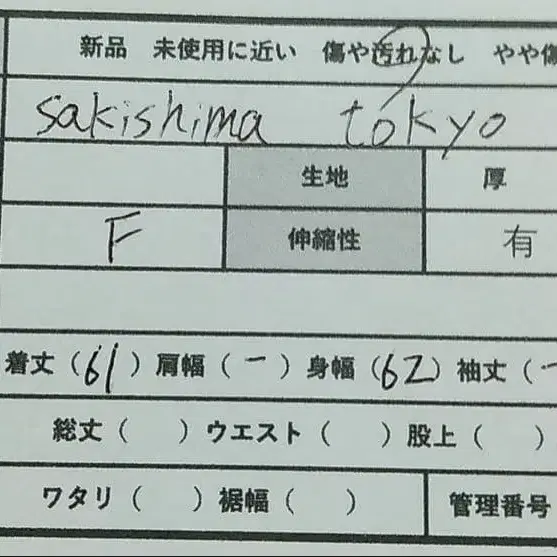 新品 未使用に近い 傷や汚れなし やや傷
sakishima tokyo
生地 厚
F 伸縮性 有
着丈(61) 肩幅(-) 身幅(62) 袖丈(-
総丈( ) ウエスト( ) 股上( )
ワタリ( ) 裾幅( ) 管理番号